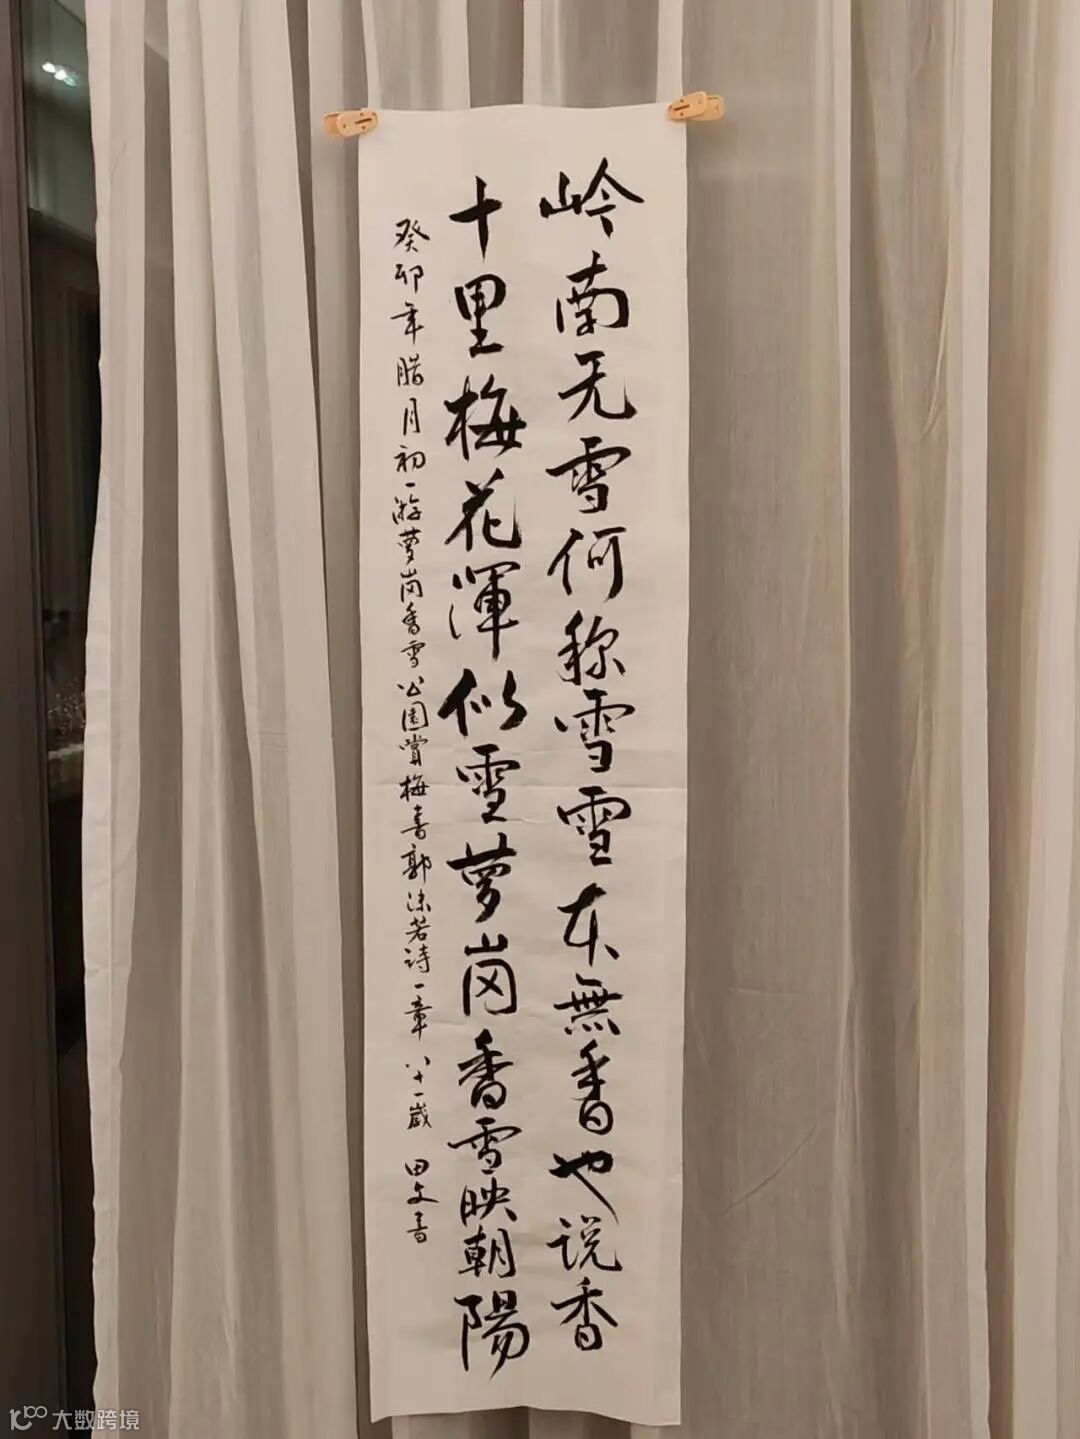 岭南无雪何称雪雪本無香也说香
十里梅花渾似雪萝岗香雪映朝陽
癸卯年腊月初一游萝岗香雪公園賞梅書郭沫若詩一章 八十一歲 田文書
大数跨境